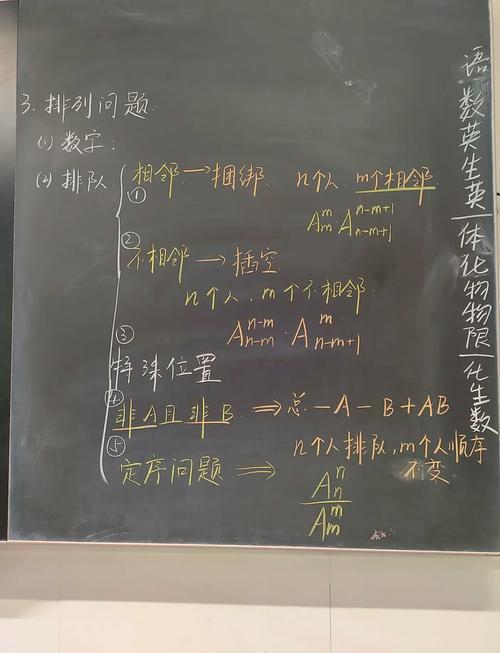 3. 排列问题.
(1) 数字:
(2) 排队
① 相邻→捆绑 n个人 m个相邻
A_m^m · A_{n-m+1}^{n-m+1}
② 不相邻→插空
n个人, m个不相邻.
A_{n-m}^{n-m} · A_{n-m+1}^m
③ 特殊位置
④ 非A且非B ⇒ 总-A-B+AB
⑤ 定序问题 ⇒ n个人排队, m个人顺序不变
A_n^n / A_m^m
语数英生英一体化物物限一化生数